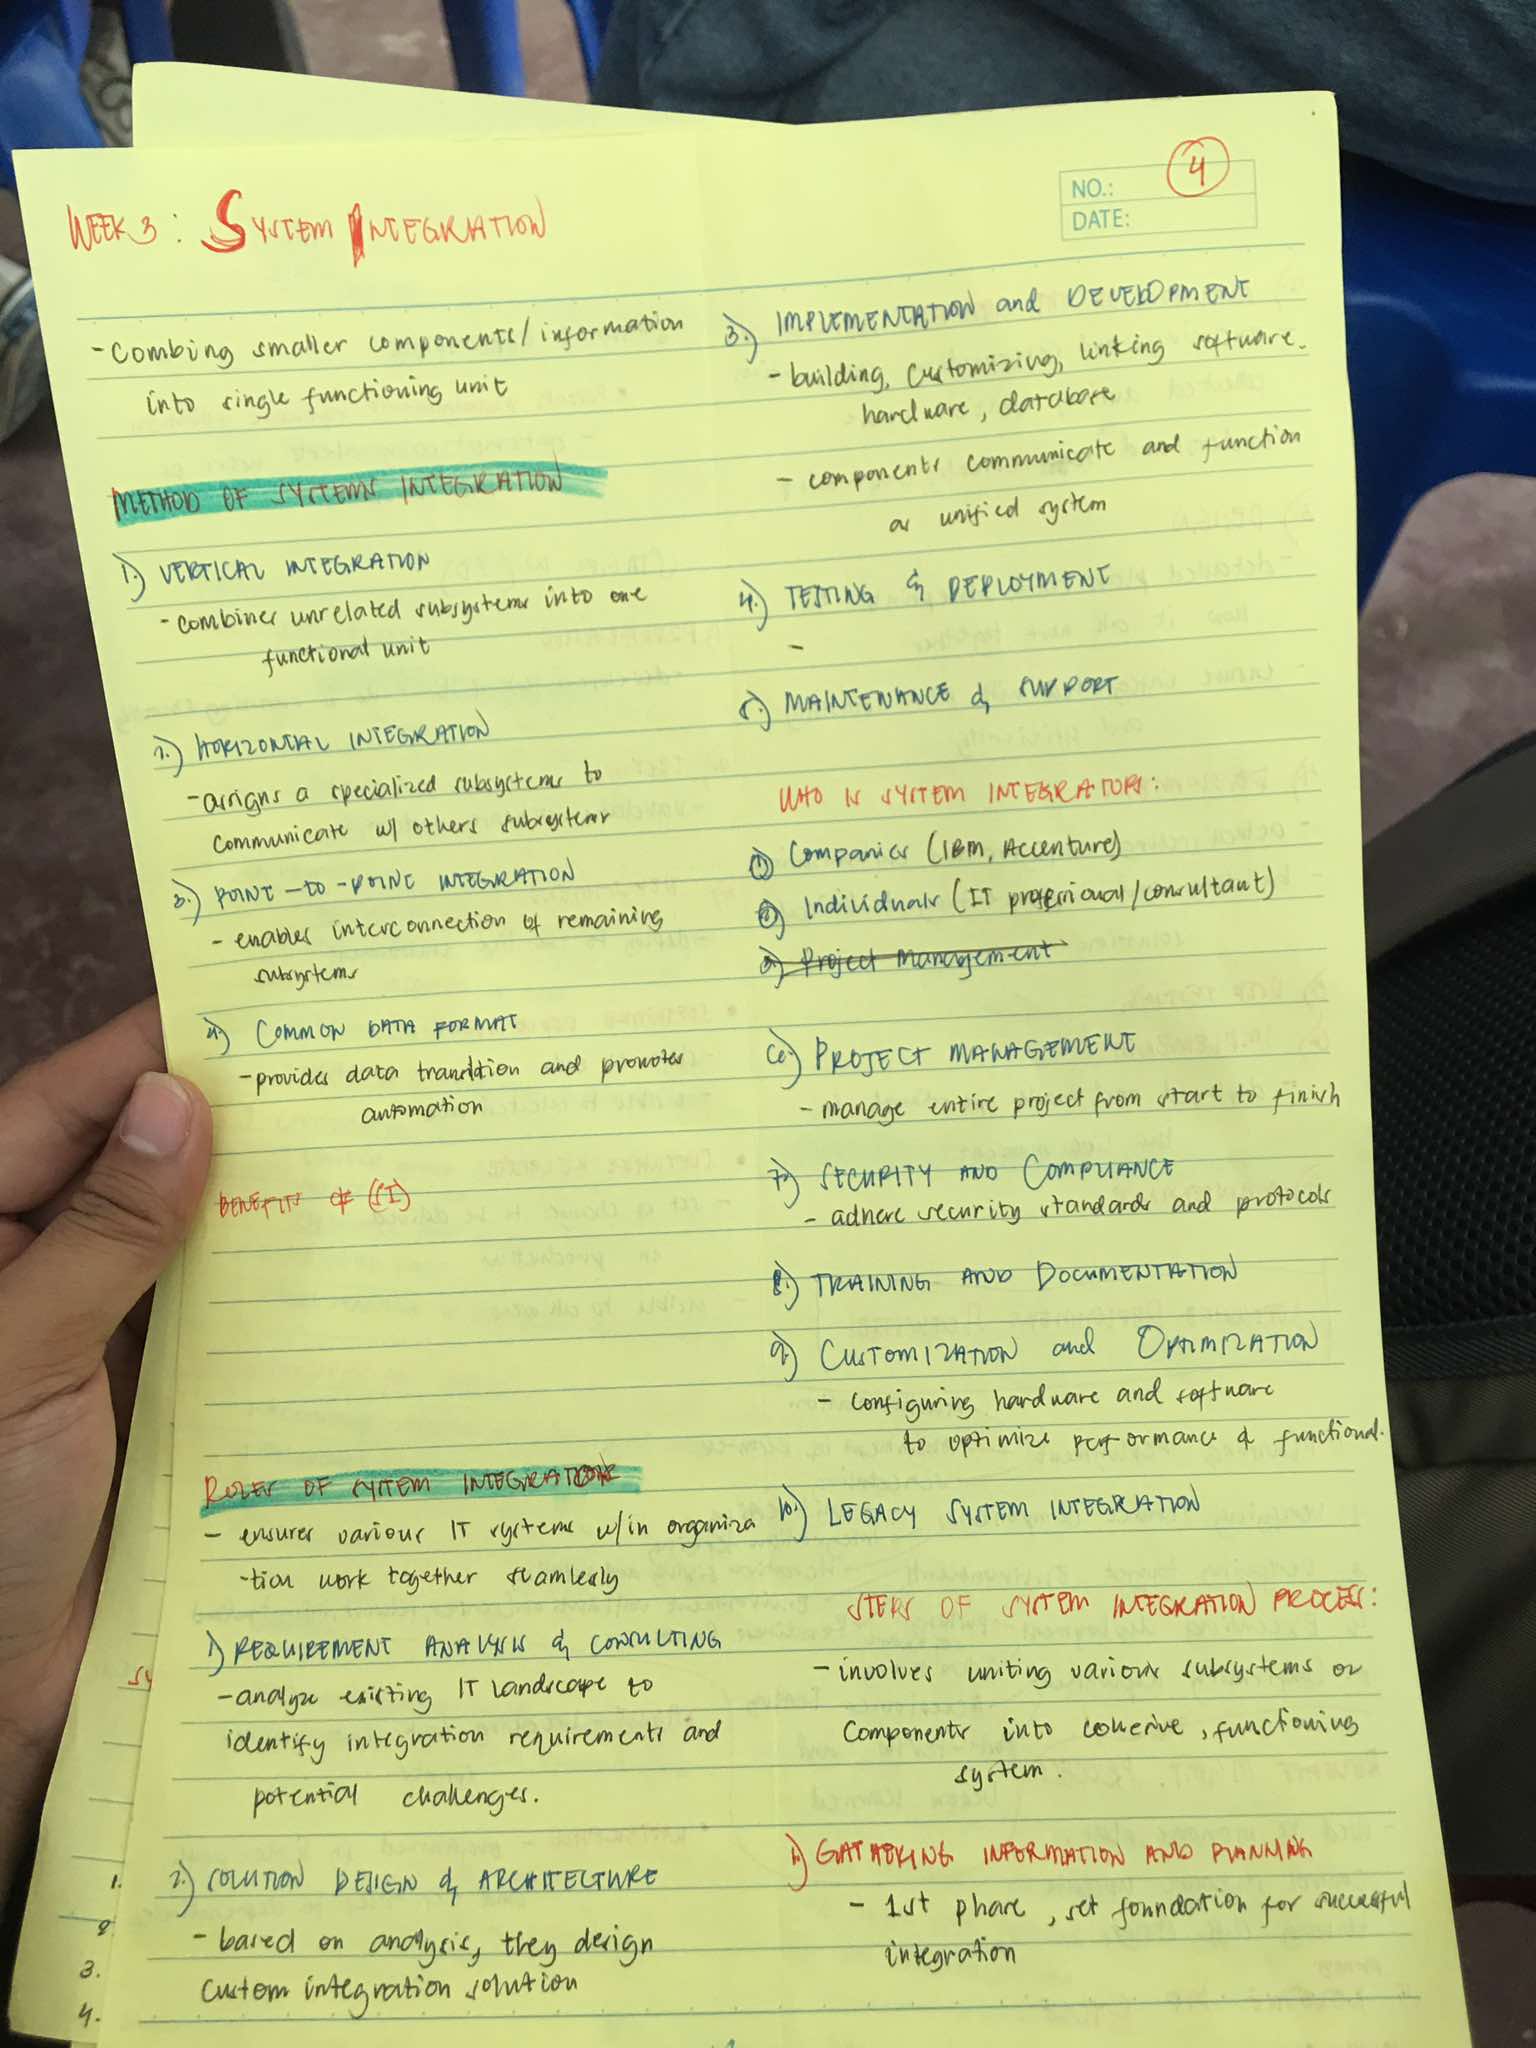 WEEK 3 : SYSTEM INTEGRATION
NO.: 4
DATE:
- Combing smaller components/information
into single functioning unit
METHOD OF SYSTEMS INTEGRATION
1.) VERTICAL INTEGRATION
- combines unrelated subsystems into one
functional unit
2.) HORIZONTAL INTEGRATION
- assigns a specialized subsystems to
communicate w/ others subsystems
3.) POINT-TO-POINT INTEGRATION
- enables interconnection of remaining
subsystems
4.) COMMON DATA FORMAT
- provides data and promotes
automation
BENEFITS OF (SI)
ROLES OF SYSTEM INTEGRATORS
- ensures various IT systems w/in organiza
-tion work together seamlessly
1.) REQUIREMENT ANALYSIS & CONSULTING
- analyze existing IT landscape to
identify integration requirements and
potential challenges.
2.) SOLUTION DESIGN & ARCHITECTURE
- based on analysis, they design
custom integration solution
3.) IMPLEMENTATION and DEVELOPMENT
- building, customizing, linking software.
hardware, database
- components communicate and function
as unified system
4.) TESTING & DEPLOYMENT
-
5.) MAINTENANCE & SUPPORT
WHO IS SYSTEM INTEGRATORS:
1) Companies (IBM, Accenture)
2) Individuals (IT professional/consultant)
3) Project Management
6.) PROJECT MANAGEMENT
- manage entire project from start to finish
7.) SECURITY AND COMPLIANCE
- adhere security standards and protocols
8.) TRAINING AND DOCUMENTATION
9.) CUSTOMIZATION and OPTIMIZATION
- configuring hardware and software
to optimize performance & functional.
10.) LEGACY SYSTEM INTEGRATION
STEPS OF SYSTEM INTEGRATION PROCESS:
- involves uniting various subsystems or
components into cohesive, functioning
system.
1.) GATHERING INFORMATION AND PLANNING
- 1st phase, set foundation for successful
integration
SY
1.
2
3.
4.